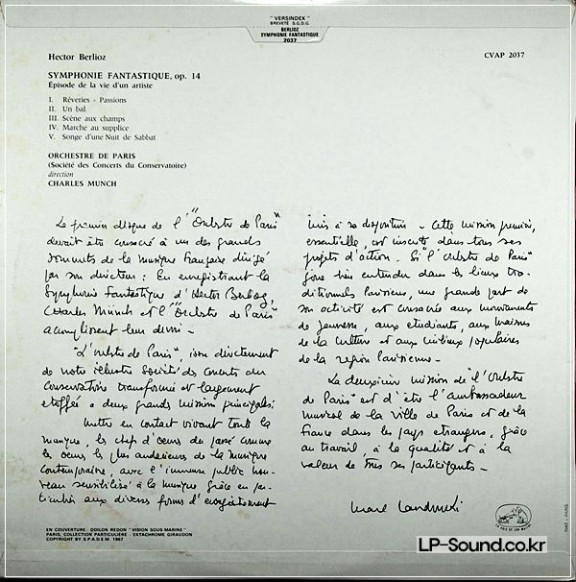 " VERSINDEX "
BREVETÉ S.G.D.G.
BERLIOZ
SYMPHONIE FANTASTIQUE
2037
CVAP 2037
Hector Berlioz
SYMPHONIE FANTASTIQUE, op. 14
Épisode de la vie d'un artiste
I. Rêveries - Passions
II. Un bal
III. Scène aux champs
IV. Marche au supplice
V. Songe d'une Nuit de Sabbat
ORCHESTRE DE PARIS
(Société des Concerts du Conservatoire)
direction
CHARLES MUNCH
Le premier disque de l'"Orchestre de Paris"
devait être consacré à un des grands
monuments de la musique française dirigé
par son directeur : En enregistrant la
Symphonie Fantastique d'Hector Berlioz,
Charles Munch et l'"Orchestre de Paris"
accomplissent leur devoir -
"L'Orchestre de Paris", issu directement
de notre illustre Société des Concerts du
Conservatoire transformé et largement
étoffée a deux grandes mission principales:
Mettre en contact vivant toute la
musique, les chefs d'oeuvre du passé comme
les oeuvres les plus audacieuses de la musique
contemporaine, avec l'immense public nou-
veau sensibilisé à la musique grâce en par-
ticulier aux diverses formes d'enregistrement
mis à sa disposition - Cette mission première,
essentielle, est inscrite dans tous ses
projets d'action - Si "l'Orchestre de Paris"
fera entendre dans les lieux tra-
ditionnels Parisiens, une grande part de
son activité est consacrée aux mouvements
de jeunesse, aux étudiants, aux maisons
de la culture et aux milieux populaires
de la région Parisienne -
La deuxième mission de "l'Orchestre
de Paris" est d'être l'ambassadeur
musical de la ville de Paris et de la
France dans les pays étrangers, grâce
au travail, à la qualité et à la
valeur de tous ses participants -
Marcel Landowski
EN COUVERTURE : ODILON REDON "VISION SOUS-MARINE"
PARIS, COLLECTION PARTICULIÈRE - EKTACHROME GIRAUDON
COPYRIGHT BY S.P.A.D.E.M. 1967
LA VOIX DE SON MAITRE
LP-Sound.co.kr